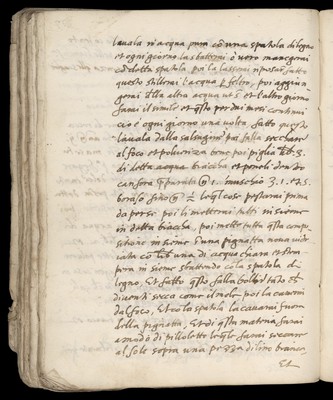 lavala in acqua pura cō una spatola di legno
et ogni giorno la sbatterai ò vero mangerai
cō detta spatola poi la lasserai riposar, fatto
questo stillerai l'acqua p feltro, poi aggiun
gerai alla altra acqua ut sª et l'altro giorno
farai il simile et qsto per dui mesi continui
cioè ogni giorno una volta fatto questo
lavala dallo salsugine poi falla secchare
al foco et polveriza bene poi piglia lb. 3.
di detta acqua et poneli dentro
canfora muschio 3. 1. et 5.
boraso fino le qli cose pestarai prima
da per se poi li metterai tutti insieme
in detta poi mette tutta qsta compo
sitione insieme ī una pignatta nova vidr
iata cō lb una di acqua chiara et stem
pera insieme sbattendo cō la spatola di
legno, Et fatto qsto falla bollir tāto che
diventi secca come il mele poi la caverai
dal foco, Et cō la spatola la cavarai fuora
della pignatta, Et di qsta materia farai
a modo di pillolette le qle farai seccare
al sole sopra una pezza di lino bianca,
Et